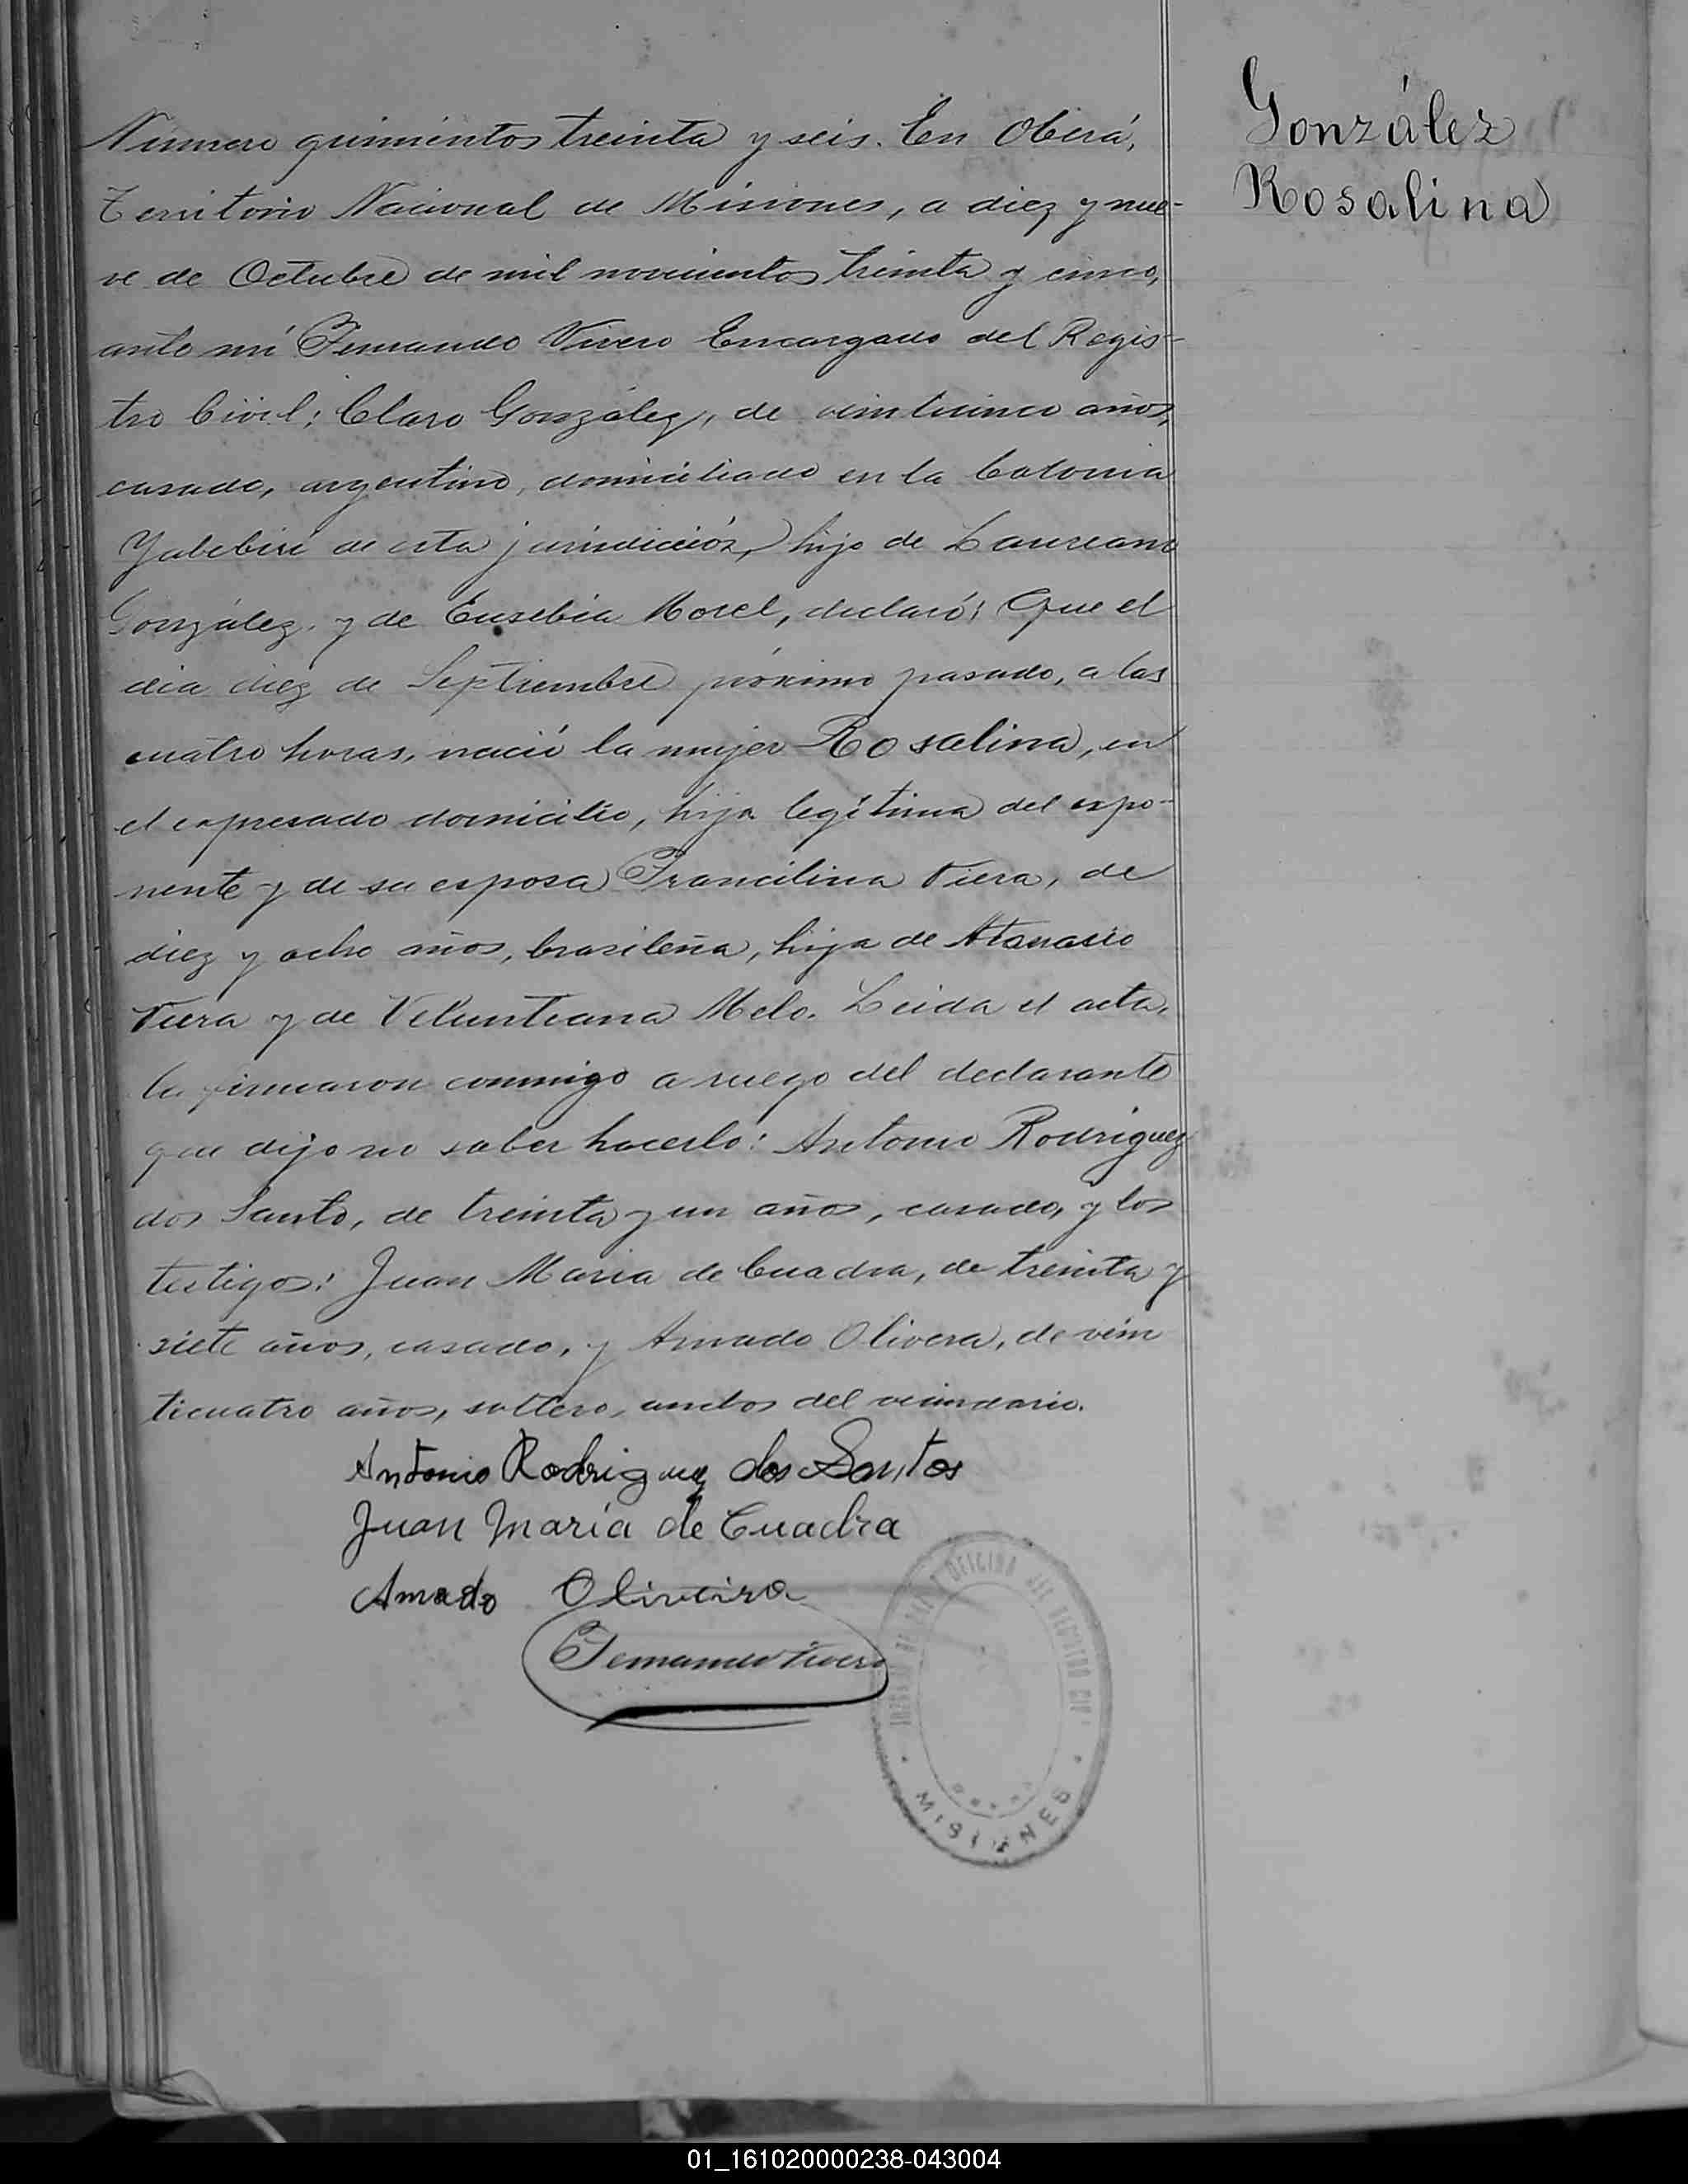 Número quinientos treinta y seis. En Oberá,
Territorio Nacional de Misiones, a diez y nue-
ve de Octubre de mil novecientos treinta y cinco,
ante mí Fernando Vivero Encargado del Regis-
tro Civil; Claro González, de veinticinco años,
casado, argentino, domiciliado en la Colonia
Yabebirí de esta jurisdicción, hijo de Laureano
González y de Eusebia Morel, declaró: Que el
día diez de Septiembre próximo pasado, a las
cuatro horas, nació la mujer Rosalina, en
el expresado domicilio, hija legítima del expo-
nente y de su esposa Francilina Viera, de
diez y ocho años, brasileña, hija de Atanasio
Viera y de Melo. Leida el acta,
la firmaron conmigo a ruego del declarante
que dijo no saber hacerlo: Antonio Rodriguez
dos Santo, de treinta y un años, casado, y los
testigos: Juan Maria de Cuadra, de treinta y
siete años, casado, y Amado Olivera, de vein
ticuatro años, soltero, ambos del vecindario.
Antonio Rodriguez dos Santos
Juan María de Cuadra
Amado Oliveira
Fernando Vivero
OFICINA DEL REGISTRO CIVIL
MISIONES
González
Rosalina
01_161020000238-043004